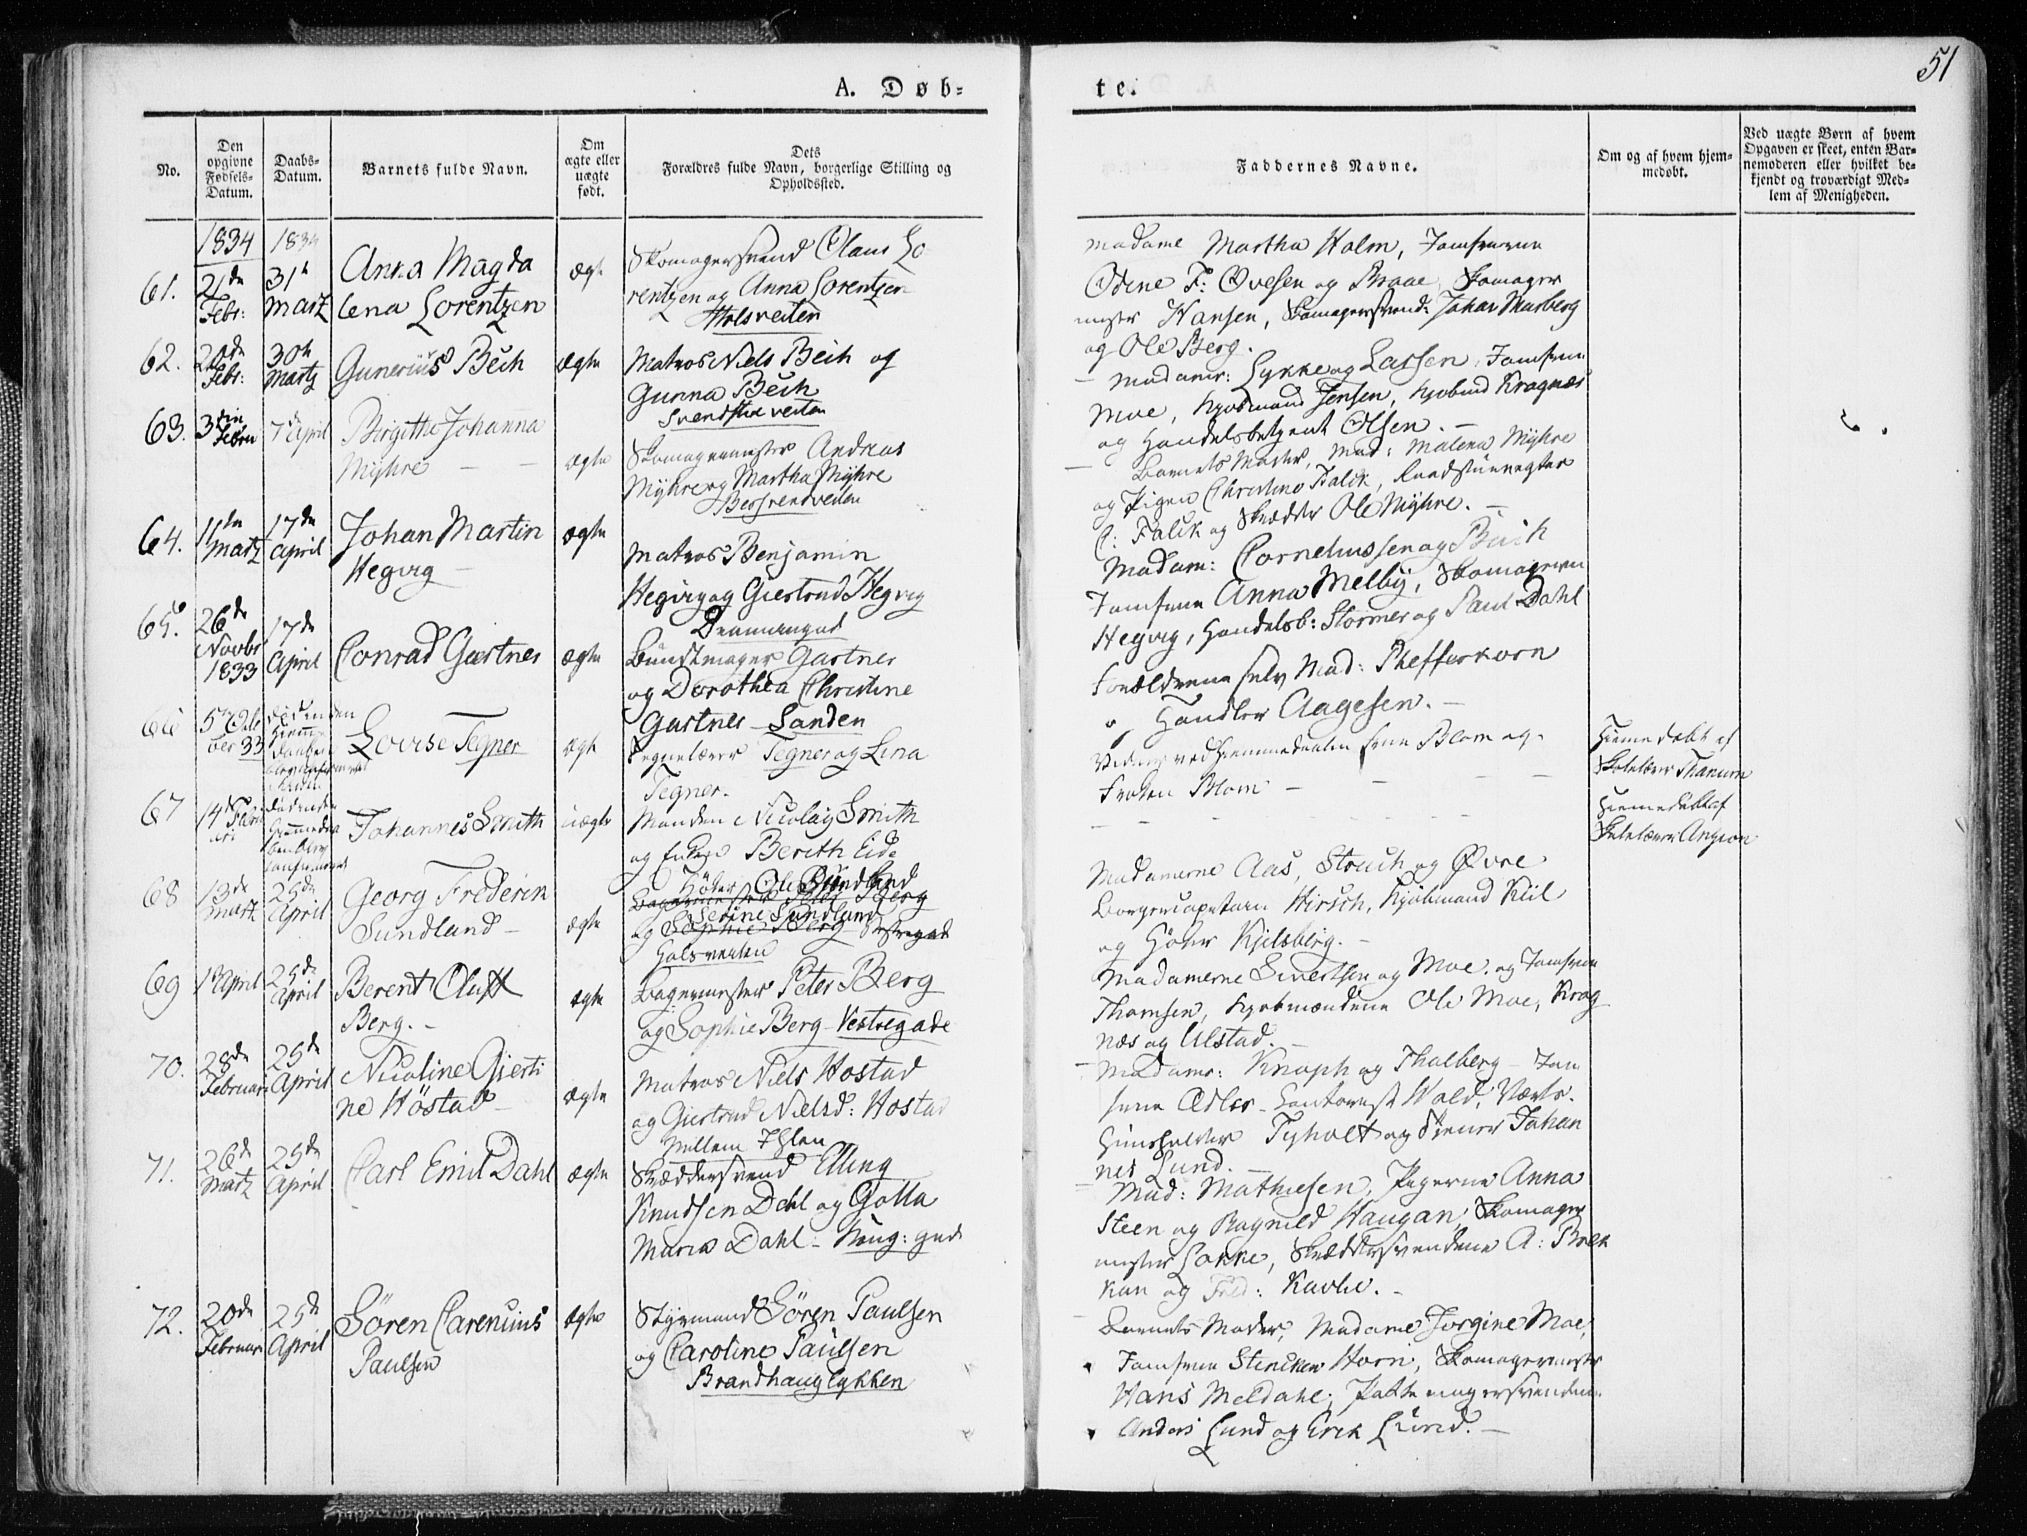 51
A. Døb-
te.
No.
Den
opgivne
Fødsels-
Datum.
Daabs-
Datum.
Barnets fulde Navn.
Om
ægte eller
uægte
født.
Dets
Forældres fulde Navn, borgerlige Stilling og
Opholdssted.
Faddernes Navne.
Om og af hvem hjem-
medøbt.
Ved uægte Børn af hvem
Opgaven er skeet, enten Bar-
nemoderen eller hvilket be-
kjendt og troværdigt Med-
lem af Menigheden.
1834
1834
61.
21de
Febr:
31te
Martz
Anna Magda
lena Lorentzen
ægte
Skomagersvend Olaus Lo
rentzen og Anna Lorentzen
Madame Martha Holm, Jomfruerne
Odine F: Ovesen og Braae, Skomager
mester Hansen, Skomagersvend: Johan Marberg
og Ole Berg.
62.
20de
Febr:
30te
Martz
Gunerius Bech
ægte
Matros Niels Bech og
Gunna Bech
Madamer: Lykke og Lassen, Jomfrue
Moe, Kjøbmand Jensen, Kjøbmd Kragnæs
og Handelsbetjent Olsen.
63.
3die
Febru
7de April
Birgitta Johanna
Myhre
ægte
Skomagermester Andreas
Myhre og Martha Myhre
Barnets Moder, Mad: Malena Myhre
og Pigen Christine Falck,
C: Falck og Skrædder Ole Myhre.
64.
11te
Martz
17de
April
Johan Martin
Hegvig
ægte
Matros Benjamin
Hegvig og Giertrud Hegvig
Madam: Corneliussen og Buch
Jomfrue Anna Melbÿ, Skomageren
Hegvig, Handelsb: Stormer og Paul Dahl
65.
26de
Novbr
1833
17de
April
Conrad Gartner
ægte
Bundtmager Gartner
og Dorothea Christine
Gartner Sanden
Forældrene selv Mad: Phefferkorn
og Handler Aagesen.
66
5te
ber 33
Lovise Tegner
ægte
Tegnelærer Tegner og Lina
Tegner.
Vidner ved Hjemmedaaben Frue Blom og
Frøken Blom
Hjemedøbt af
Skolelærer Thanum
67
14de
Johannes Smith
uægte
Manden Nicolay Smith
og Enken Berith Eide
Hjemedøbt af
Skolelærer
68
13de
Martz
25de
April
Georg Frederik
Sundland
ægte
Høker Ole Sundland
Bagermester Peter Berg
Serine Sundland
og Sophie Berg Vestregade
Madamerne Aas, Struch og Øvre
Borgercapetain Hirsch, Kjøbmand Kiil
og Høker Kjelsberg.
69
1te April
25de
April
Berent Oluff
Berg.
ægte
Bagermester Peter Berg
og Sophie Berg Vestregade
Madamerne Sivertsen og Moe og Jomfrue
Thomsen, Kjøbmændene Ole Moe, Krag
næs og Ulstad.
70.
28de
Februar
25de
April
Nicoline Gierti
ne Höstad
ægte
Matros Niels Hostad
og Giertrud Nielsd: Hostad
Millem Ihlen
Madame: Knoph og Thalberg Jom
frue Adler Contorist Wold, Værts-
huusholder Tyholt og Tiener Johan
nes Lund.
71.
26de
Martz
25de
April
Carl Emil Dahl
ægte
Skræddersvend Elling
Knudsen Dahl og Golla
Maria Dahl Kong: gad
Mad: Mathiesen, Pigerne Anna
Steen og Ragnild Haugan, Skomager
mester Lokke, Skræddersvendene A: Brek
kan og Fred: Kavlie.
72.
20de
Februar
25de
April
Sören Carenius
Paulsen
ægte
Styrmand Sören Paulsen
og Caroline Paulsen
Brandhauglykken
Barnets Moder, Madame Jorgine Moe,
Jomfrue Stincken Horn, Skomagermester
Hans Meldahl, Pottemagersvendene
Anders Lund og Erik Lund.